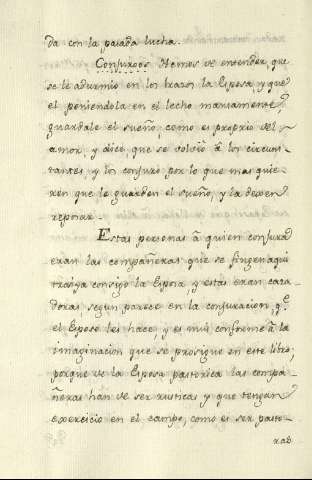 da con la pasada lucha.
Conjuroos Hemos de entender, que
se le adurmio en los brazos la Esposa, y que
el poniendola en el lecho mansamente
guardale el sueño, como es proprio del
amor, y dice, que se volvió à los circuns-
tantes, y los conjuro, por lo que mas quie-
ren que le guarden el sueño, y la dexen
reposar.
Estas personas à quien conjura
eran las compañeras que se fingen aqui
traìya consigo la Esposa, y estas eran caza-
doras segun parece en la conjuracion, qe
el Esposo les hace, y es mui conforme à la
imaginacion que se prosigue en este libro,
porque de la Esposa pastorica las compa-
ñeras han de ser rusticas y que tengan
exercicio en el campo, como es ser pasto-
ras